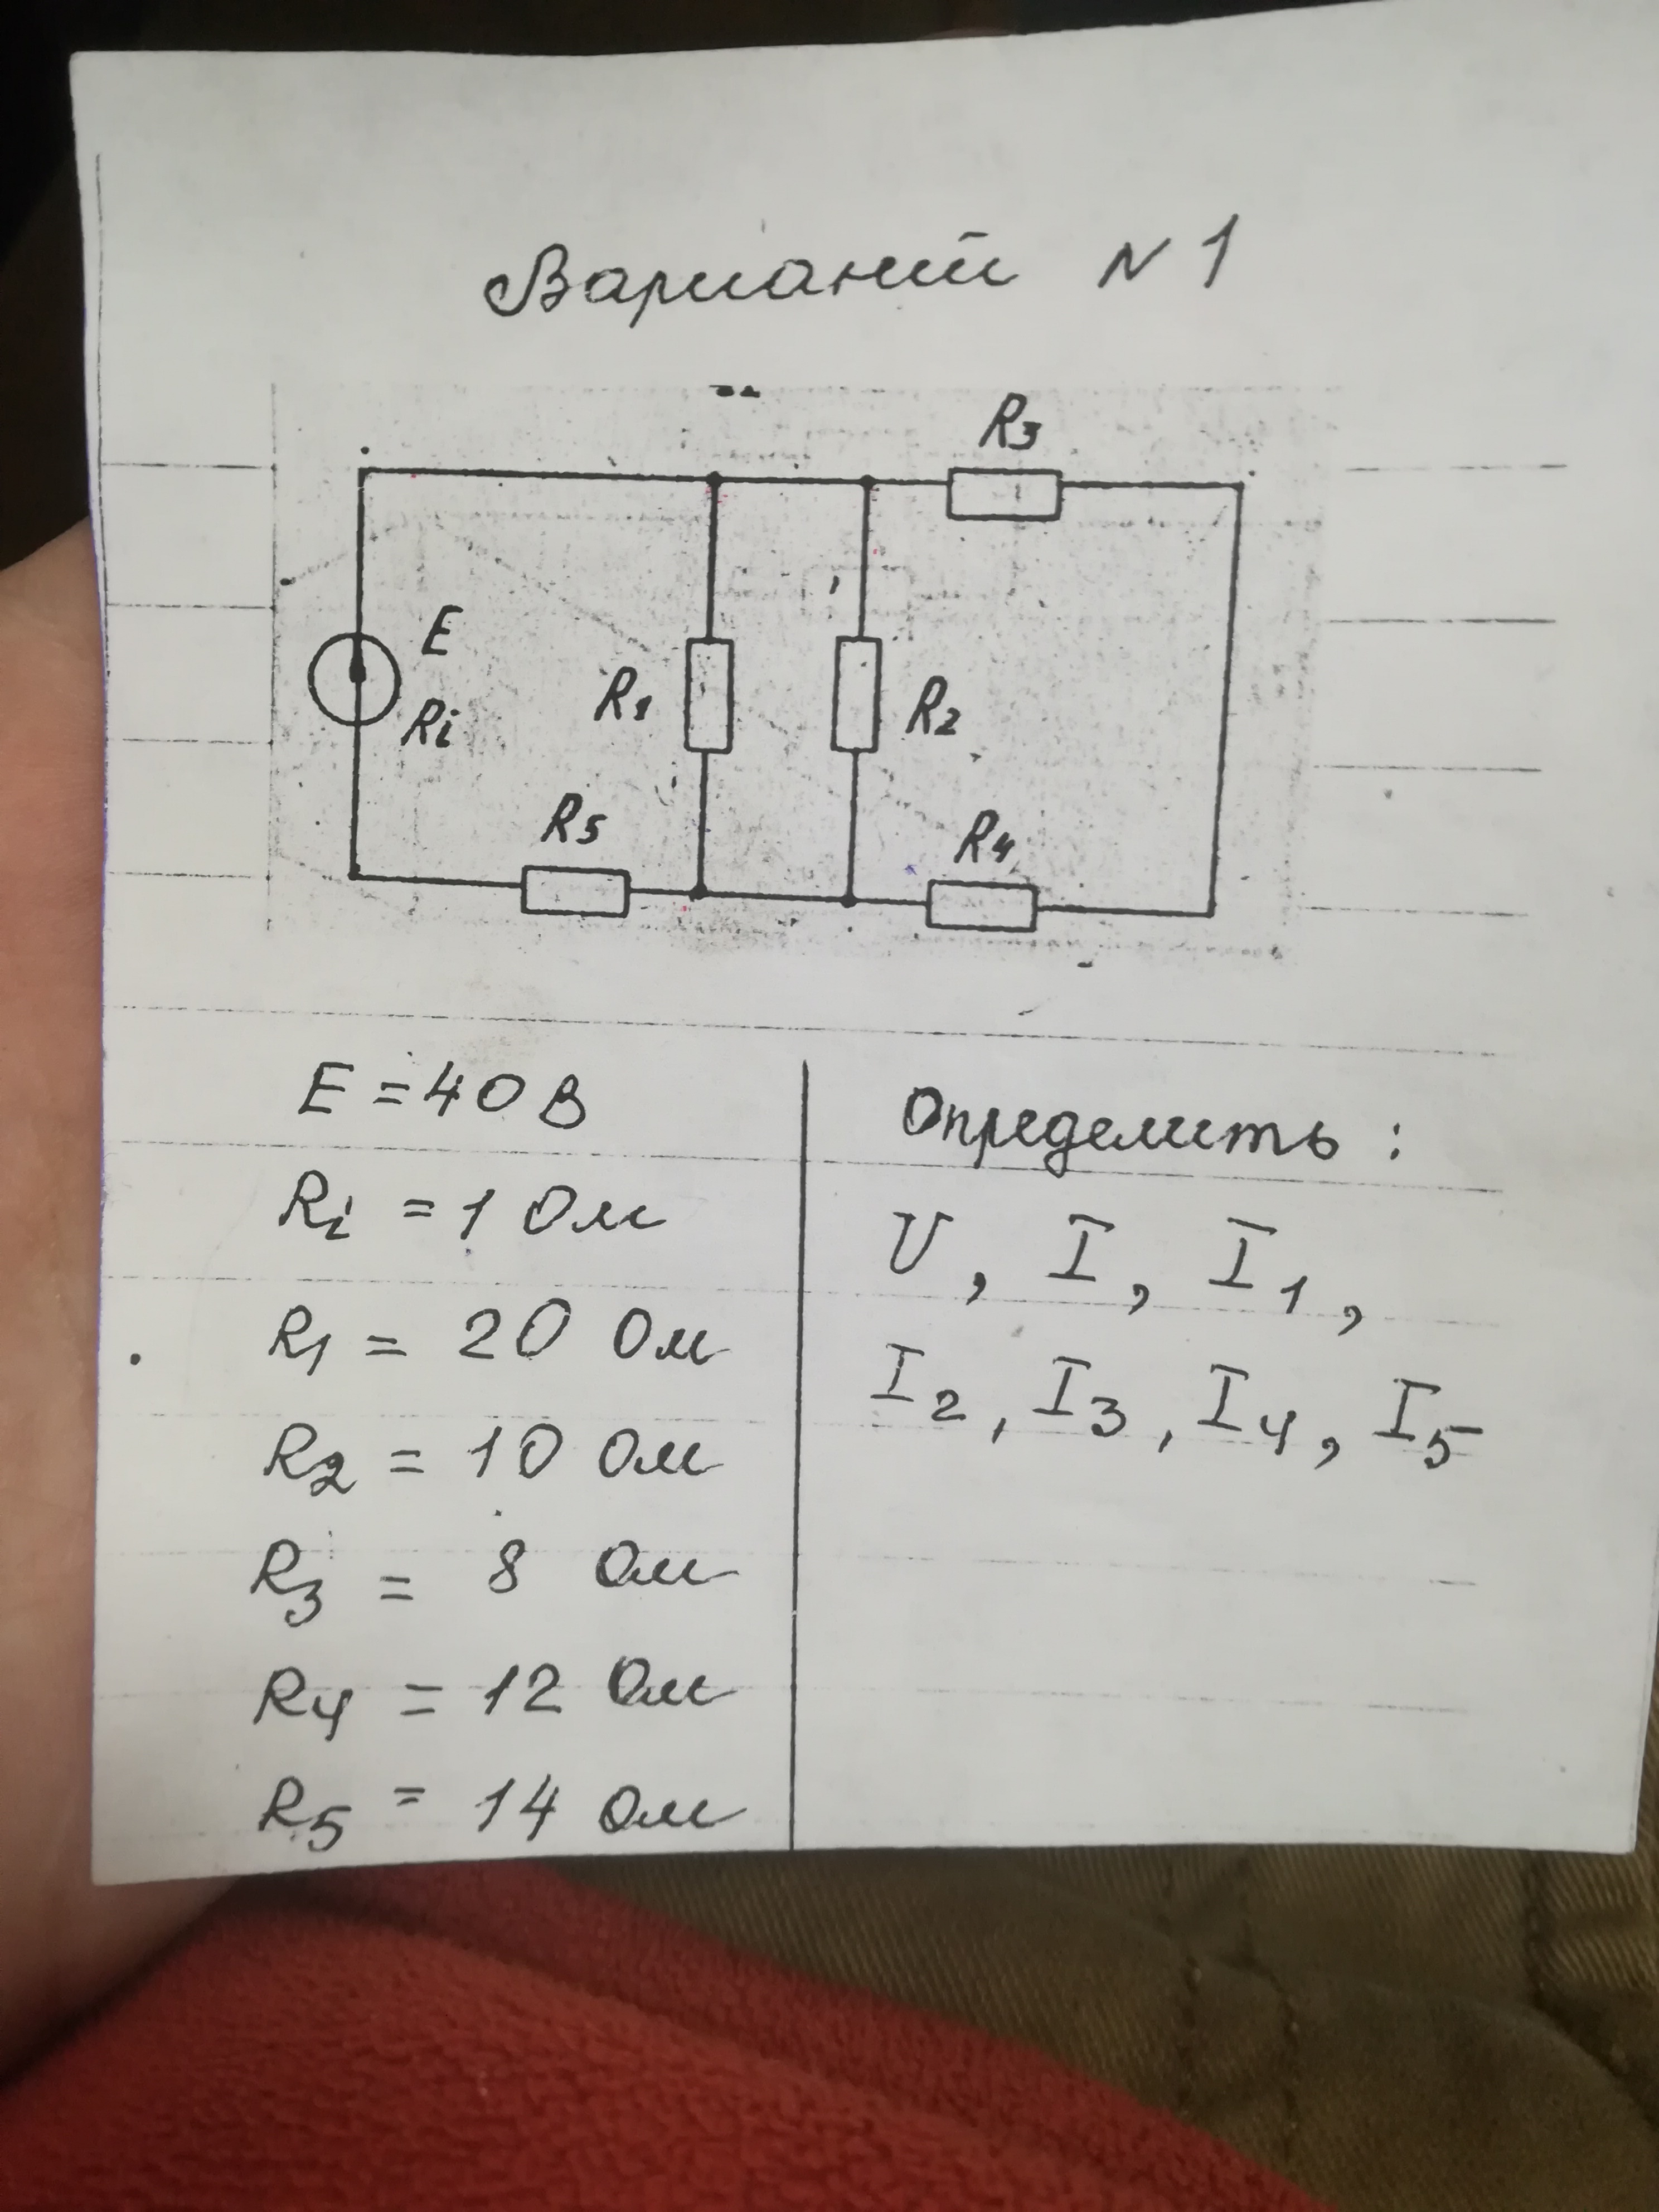 Вариант N 1
R3
E
Ri
R1
R2
R5
R4
E = 40 В
Ri = 1 Ом
R1 = 20 Ом
R2 = 10 Ом
R3 = 8 Ом
R4 = 12 Ом
R5 = 14 Ом
Определить :
U, I, I1,
I2, I3, I4, I5